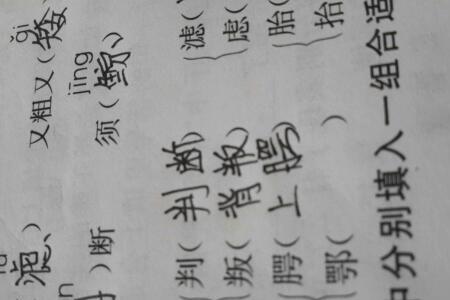 ǎi
又粗又(矮
jīng
)断 须(鲸、
判(判断) 滤(
叛(背叛) 虑(
腭(上腭) 胎(
鄂( ) 抬(
分别填入一组合适